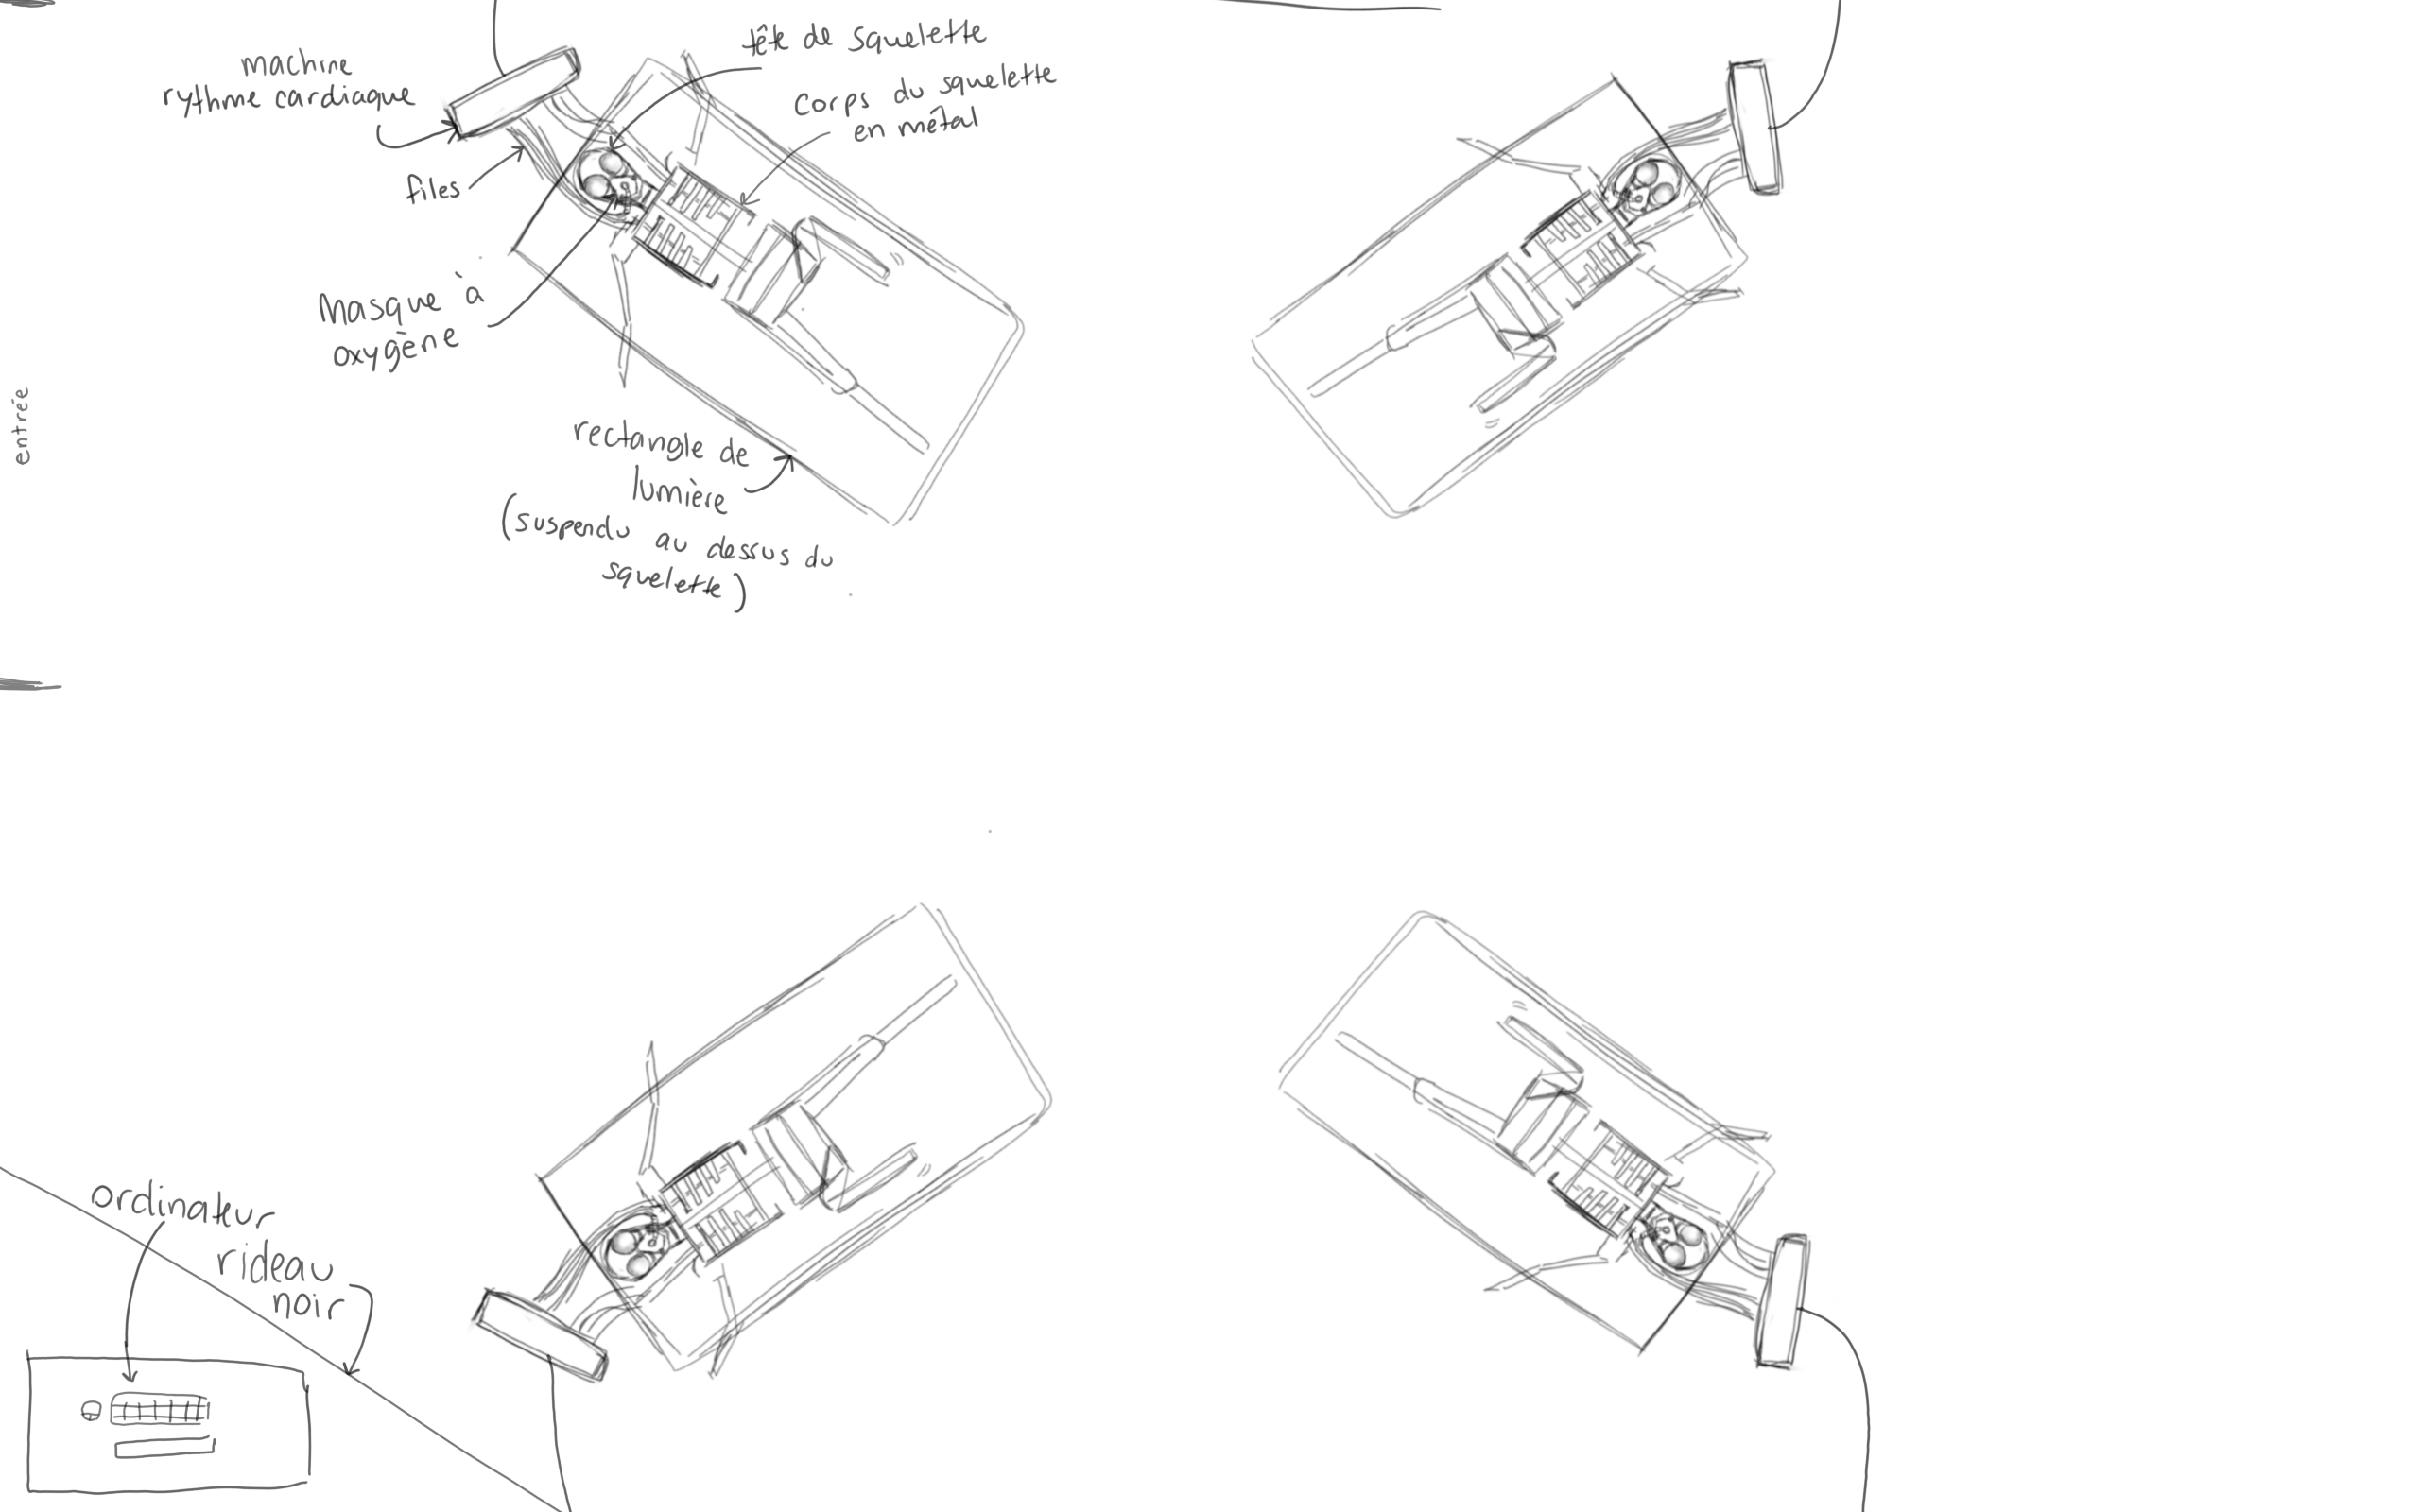 machine
rythme cardiaque
tête de squelette
corps du squelette
en métal
files
Masque à
oxygène
entrée
rectangle de
lumière
(suspendu au dessus du
squelette)
ordinateur
rideau
noir